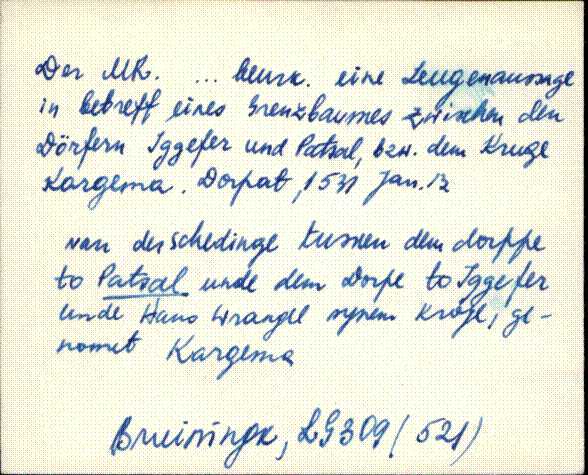 Der MR. ... beurk. eine Zeugenaussage
in betreff eines Grenzbaumes zwischen den
Dörfern Iggefer und Patsal, bzw. dem Kruge
Kargema. Dorpat, 1531 Jan. 12
van der schedinge tussen dem dorppe
to Patsal unde dem Dorpe to Iggefer
unde Hans Wrangel synem Kroge, ge-
nomet Kargema
Bruiningk, LG 309 (521)